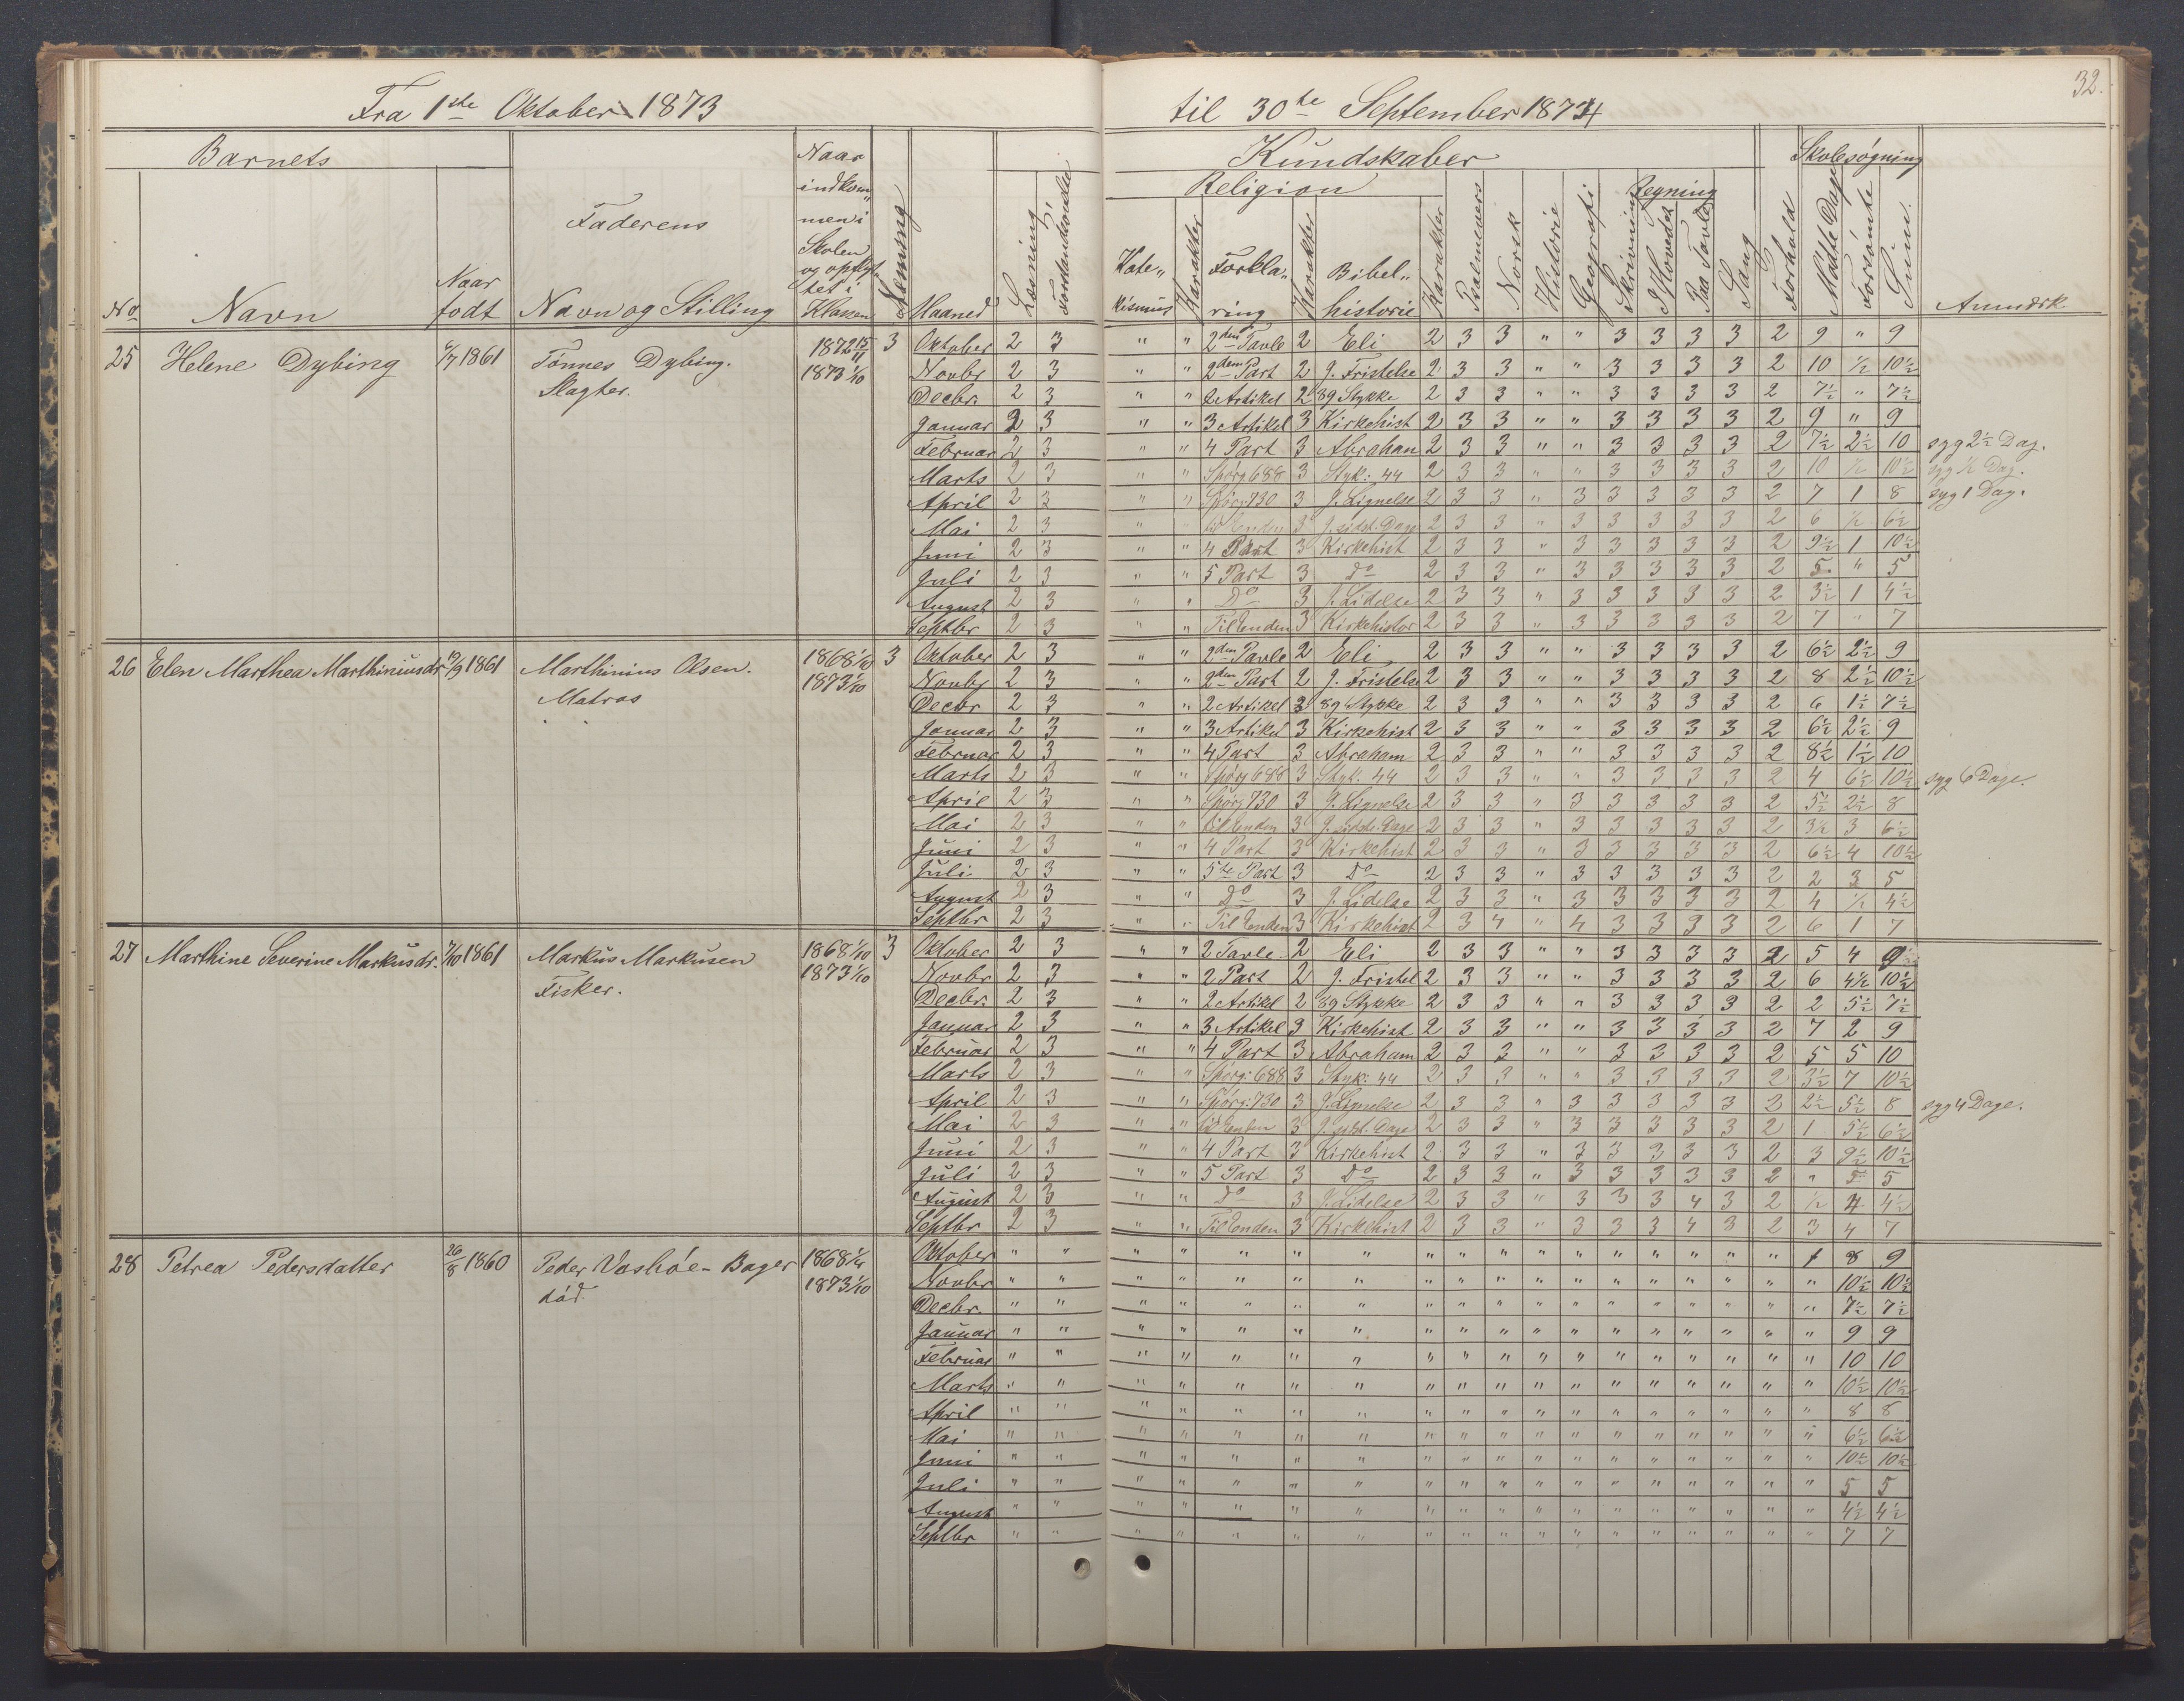 32.
Fra 1ste Oktober 1873 til 30te September 1874
Barnets Faderens Naar indkom„ men i Skolen og opflyt„ tet i Klassen Kundskaber Skolesøgning
Religion Regning
No Navn Naar fodt Navn og Stilling Maaned Læsning Forstandsøvelse Kate„ kismus Karakter Forkla„ ring Karakter Bibel„ historie Karakter Psalmevers Norsk Historie Geografi Skrivning I Hovedet Paa Tavle Sang Forhold Mødte Dage Forsømte Sum. Anmærk.
25 Helene Dybing 1861 Tønnes Dybing. 1872 15/11 3 Oktober 2 3 " " 2den Tavle 2 Eli 2 3 3 " " 3 3 3 3 2 9 " 9
Slagter. 1873 1/10 Novbr 2 3 " " 2den Part 2 J. Fristelse 2 3 3 " " 3 3 3 3 2 10 1/2 10 1/2
Decbr. 2 3 " " 2 Artikel 2 89 Stykke 2 3 3 " " 3 3 3 3 2 7 1/2 " 7 1/2
Januar 2 3 " " 3 Artikel 3 Kirkehist 2 3 3 " " 3 3 3 3 2 9 " 9
Februar 2 3 " " 4 Part 3 Abraham 2 3 3 " " 3 3 3 3 2 7 1/2 2 1/2 10 syg 2 1/2 Dag.
Marts 2 3 " " Spørg 688 3 Styk: 44 2 3 3 " " 3 3 3 3 2 10 1/2 10 1/2 syg 1/2 Dag.
April 2 3 " " Spørg: 730 3 J. Lignelse 2 3 3 " 3 3 3 3 3 2 7 1 8 syg 1 Dag.
Mai 2 3 " " til Enden 3 J. sidst. Dage 2 3 3 " 3 3 3 3 3 2 6 1/2 6 1/2
Juni 2 3 " " 4 Part 3 Kirkehist 2 3 3 " 3 3 3 3 3 2 9 1/2 1 10 1/2
Juli 2 3 " " 5 Part 3 Do 2 3 3 " 3 3 3 3 3 2 5 " 5
August 2 3 " " Do 3 J. Lidelse 2 3 3 " 3 3 3 3 3 2 3 1/2 1 4 1/2
Septbr 2 3 " " Til Enden 3 Kirkehistor 2 3 3 " 3 3 3 3 3 2 7 " 7
26 Elen Marthea Marthinusdr 19/9 1861 Marthinius Olsen. 1868 1/10 3 Oktober 2 3 " " 2den Tavle 2 Eli 2 3 3 " " 3 3 3 3 2 6 1/2 2 1/2 9
Matros 1873 1/10 Novbr 2 3 " " 2den Part 2 J. Fristelse 2 3 3 " " 3 3 3 3 2 8 2 1/2 10 1/2
Decbr 2 3 " " 2 Artikel 3 89 Stykke 2 3 3 " " 3 3 3 3 2 6 1 1/2 7 1/2
Januar 2 3 " " 3 Artikel 3 Kirkehist 2 3 3 " " 3 3 3 3 2 6 1/2 2 1/2 9
Februar 2 3 " " 4 Part 3 Abraham 2 3 3 " " 3 3 3 3 2 8 1/2 1 1/2 10
Marts 2 3 " " Spørg 688 3 Styk. 44 2 3 3 " " 3 3 3 3 2 4 6 1/2 10 1/2 syg 6 Dage.
April 2 3 " " Spørg 730 3 J. Lignelse 2 3 3 " 3 3 3 3 3 2 5 1/2 2 1/2 8
Mai 2 3 " " til Enden 3 J. sidst. Dage 2 3 3 " 3 3 3 3 3 2 3 1/2 3 6 1/2
Juni 2 3 " " 4 Part 3 Kirkehist 2 3 3 " 3 3 3 3 3 2 6 1/2 4 10 1/2
Juli 2 3 " " 5te Part 3 Do 2 3 3 " 3 3 3 3 3 2 2 3 5
August 2 3 " " Do 3 J. Lidelse 2 3 3 " 3 3 3 3 3 2 4 1/2 4 1/2
Septbr 2 3 " " Til Enden 3 Kirkehist 2 3 4 " 4 3 3 3 3 2 6 1 7
27 Marthine Severine Markusdr. 1861 Markus Markusen 1868 1/10 3 Oktober 2 3 " " 2 Tavle 2 Eli 2 3 3 " " 3 3 3 3 2 5 4 9
Fisker. 1873 1/10 Novbr 2 3 " " 2 Part 2 J. Fristel 2 3 3 " " 3 3 3 3 2 6 4 1/2 10 1/2
Decbr. 2 3 " " 2 Artikel 2 89 Stykke 2 3 3 " " 3 3 3 3 2 2 5 1/2 7 1/2
Januar 2 3 " " 3 Artikel 3 Kirkehist 2 3 3 " " 3 3 3 3 2 7 2 9
Februar 2 3 " " 4 Part 3 Abraham 2 3 3 " " 3 3 3 3 2 5 5 10
Marts 2 3 " " Spørg: 688 3 Styk: 44 2 3 3 " " 3 3 3 3 2 3 1/2 7 10 1/2
April 2 3 " " Spørg: 730 3 J. Lignelse 2 3 3 " 3 3 3 3 3 2 2 1/2 5 1/2 8 syg 4 Dage.
Mai 2 3 " " til Enden 3 J. sidst. Dage 2 3 3 " 3 3 3 3 3 2 1 5 1/2 6 1/2
Juni 2 3 " " 4 Part 3 Kirkehist 2 3 3 " 3 3 3 3 3 2 3 10 1/2
Juli 2 3 " " 5 Part 3 Do 2 3 3 " 3 3 3 3 3 2 " 5 5
August 2 3 " " Do 3 J. Lidelse 2 3 3 " 3 3 3 4 3 2 1/2 4 4 1/2
Septbr 2 3 " " Til Enden 3 Kirkehist 2 3 3 " 3 3 3 4 3 2 3 4 7
28 Petrea Pedersdatter 26/8 1860 Peder Vashøe - Bager 1868 Oktober " " " " " " " " " " " " " " " " " 1 8 9
død. 1873 1/10 Novbr " " " " " " " " " " " " " " " " " " 10 1/2 10 1/2
Decbr. " " " " " " " " " " " " " " " " " " 7 1/2 7 1/2
Januar " " " " " " " " " " " " " " " " " " 9 9
Februar " " " " " " " " " " " " " " " " " " 10 10
Marts " " " " " " " " " " " " " " " " " " 10 1/2 10 1/2
April " " " " " " " " " " " " " " " " " " 8 8
Mai " " " " " " " " " " " " " " " " " " 6 1/2 6 1/2
Juni " " " " " " " " " " " " " " " " " " 10 1/2 10 1/2
Juli " " " " " " " " " " " " " " " " " " 5 5
August " " " " " " " " " " " " " " " " " " 4 1/2 4 1/2
Septbr " " " " " " " " " " " " " " " " " " 7 7